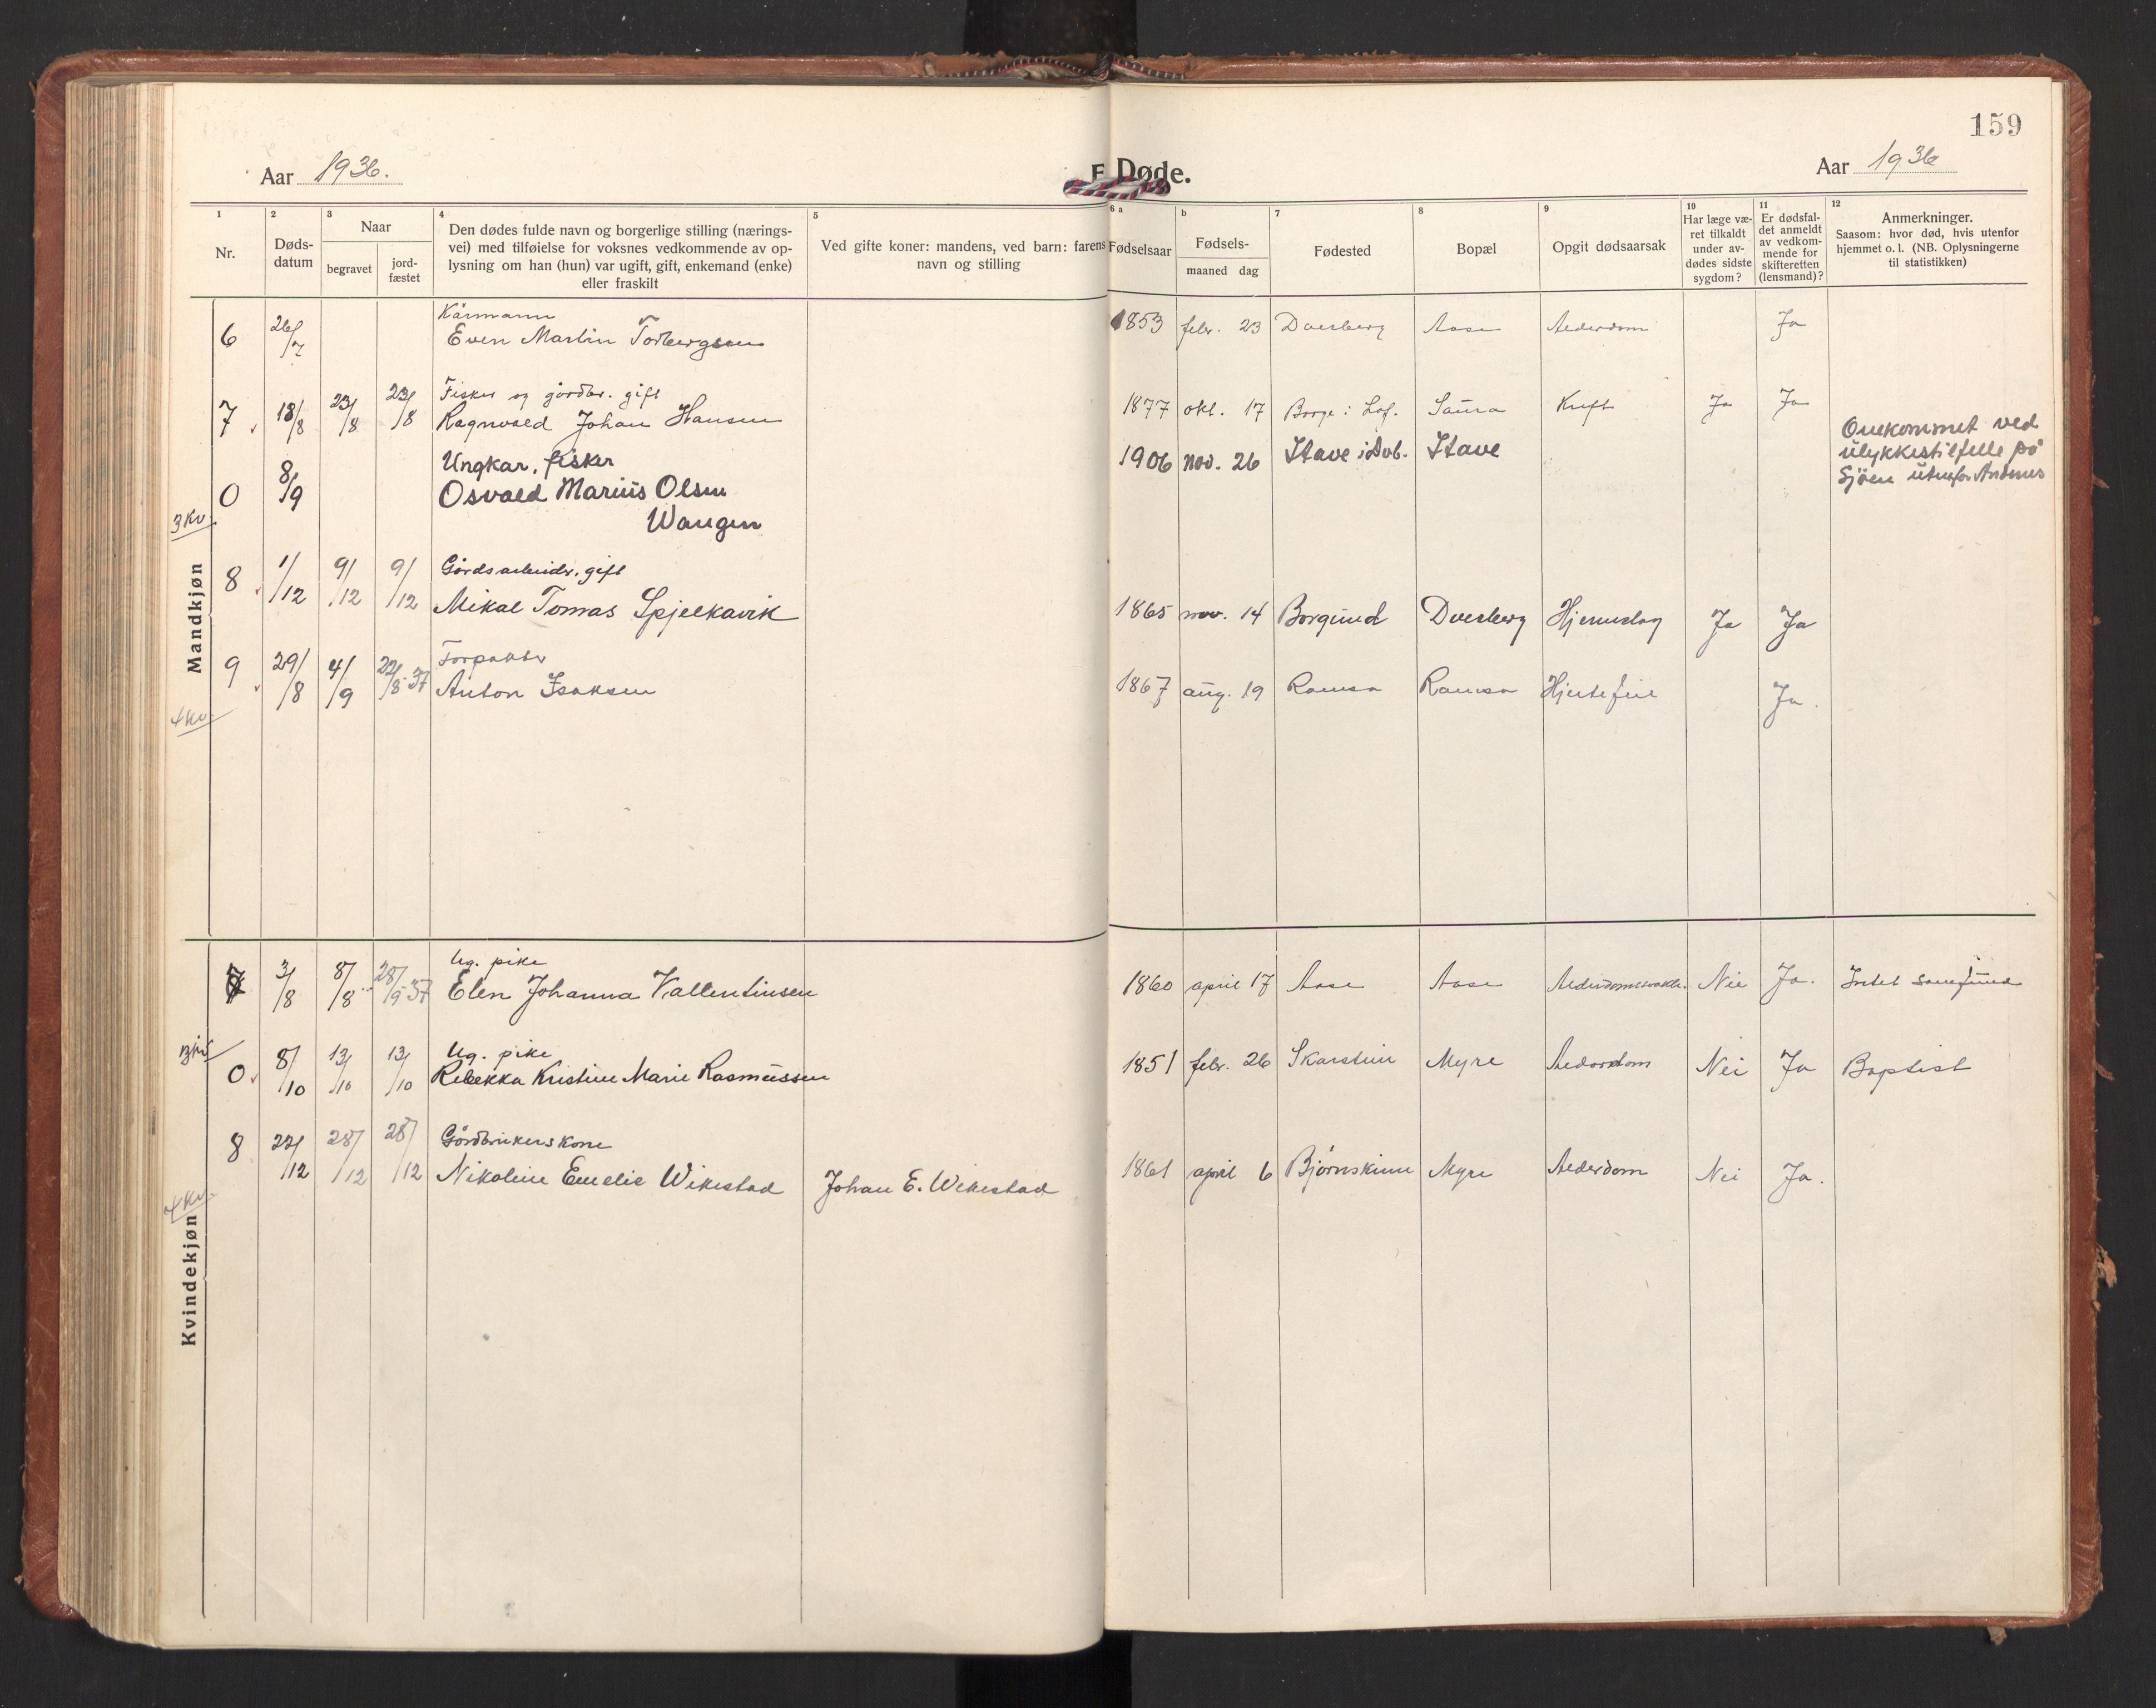 159
Aar 1936.
F. Døde.
Aar 1936
1 2 3 4 5 6 a b 7 8 9 10 11 12
Nr.
Døds-
datum
Naar
begravet
jord-
fæstet
Den dødes fulde navn og borgerlige stilling (nærings-
vei) med tilføielse for voksnes vedkommende av op-
lysning om han (hun) var ugift, gift, enkemand (enke)
eller fraskilt
Ved gifte koner: mandens, ved barn: farens
navn og stilling
Fødselsaar
Fødsels-
maaned dag
Fødested
Bopæl
Opgit dødsaarsak
Har læge væ-
ret tilkaldt
under av-
dødes sidste
sygdom?
Er dødsfal-
det anmeldt
av vedkom-
mende for
skifteretten
(lensmand)?
Anmerkninger.
Saasom: hvor død, hvis utenfor
hjemmet o. l. (NB. Oplysningerne
til statistikken)
Mandkjøn
Kårmann
6 26/7 Even Martin Torbergsen 1853 febr. 23 Dverberg Aase Alderdom Ja
Fisker og gårdbr. gift
7 18/8 23/8 23/8 Ragnvald Johan Hansen 1877 okt. 17 Borge i Lof. Saura Kreft Ja Ja
Ungkar, fisker
0 8/9 Osvald Marius Olsen 1906 nov. 26 Stave i Dvb. Stave
Wangen
Omkommet ved
ulykkestilfelle på
Sjøen utenfor Andenes
3 kv
Gårdsarbeider, gift
8 1/12 9/12 9/12 Mikal Tomas Spjelkavik 1865 nov. 14 Borgund Dverberg Hjerneslag Ja Ja
Forpakter
9 29/8 4/9 22/8-37 Anton Isaksen 1867 aug. 19 Ramsa Ramsa Hjertefeil Ja.
4 kv
Kvindekjøn
Ug. pike
7 3/8 8/8 28/9-37 Elen Johanna Vallentinsen 1860 april 17 Aase Aase Nei Ja. Intet samfund
Ug. pike
0 8/10 13/10 13/10 Rebekka Kristine Marie Rasmussen 1851 febr. 26 Skarstein Myre Alderdom Nei Ja Baptist
Gårdbrukerskone
8 22/12 28/12 28/12 Nikoline Emelie Wikestad Johan E. Wikestad 1861 april 6 Bjørnskinn Myre Alderdom Nei Ja.
4 kv